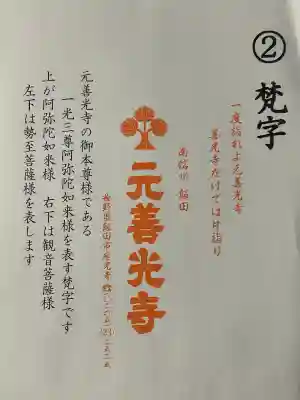 ② 梵字
一度詣れよ元善光寺
善光寺だけでは片詣り
南信州 飯田
元善光寺
長野県飯田市座光寺
元善光寺の御本尊様である
一光三尊阿弥陀如来様を表す梵字です
上が阿弥陀如来様 右下は観音菩薩様
左下は勢至菩薩様を表します